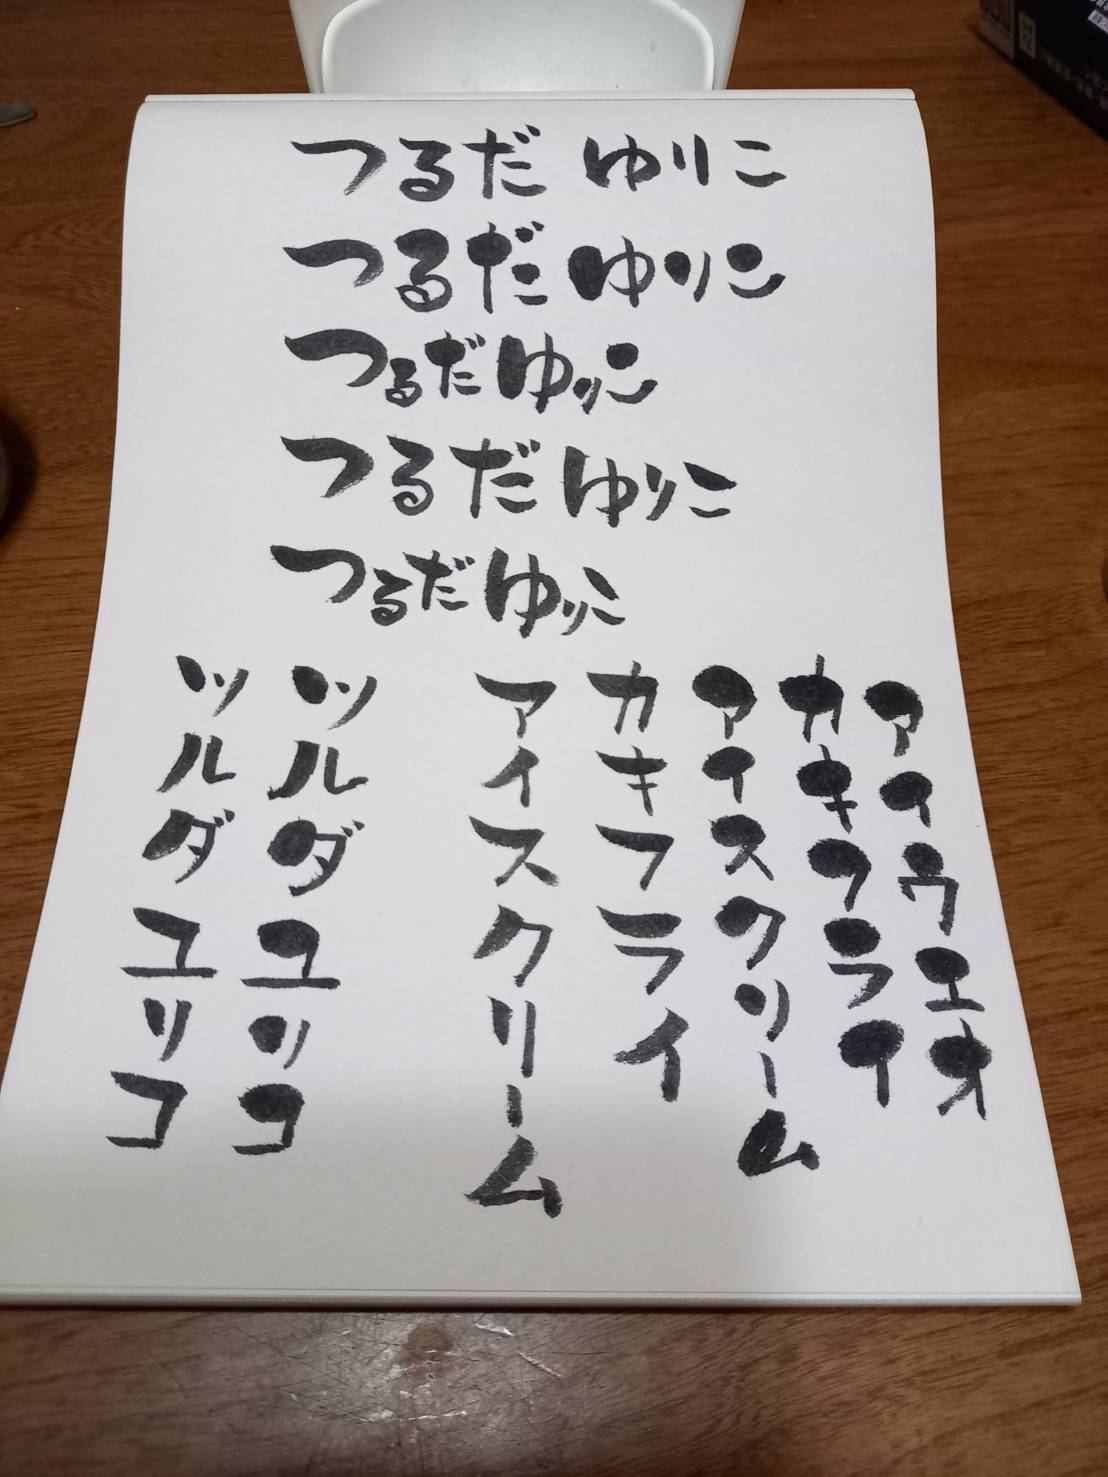 つるだ ゆりこ
つるだ ゆりこ
つるだ ゆりこ
つるだ ゆりこ
つるだ ゆりこ
アイウエオ
カキフライ
アイスクリーム
カキフライ
アイスクリーム
ツルダ ユリコ
ツルダ ユリコ